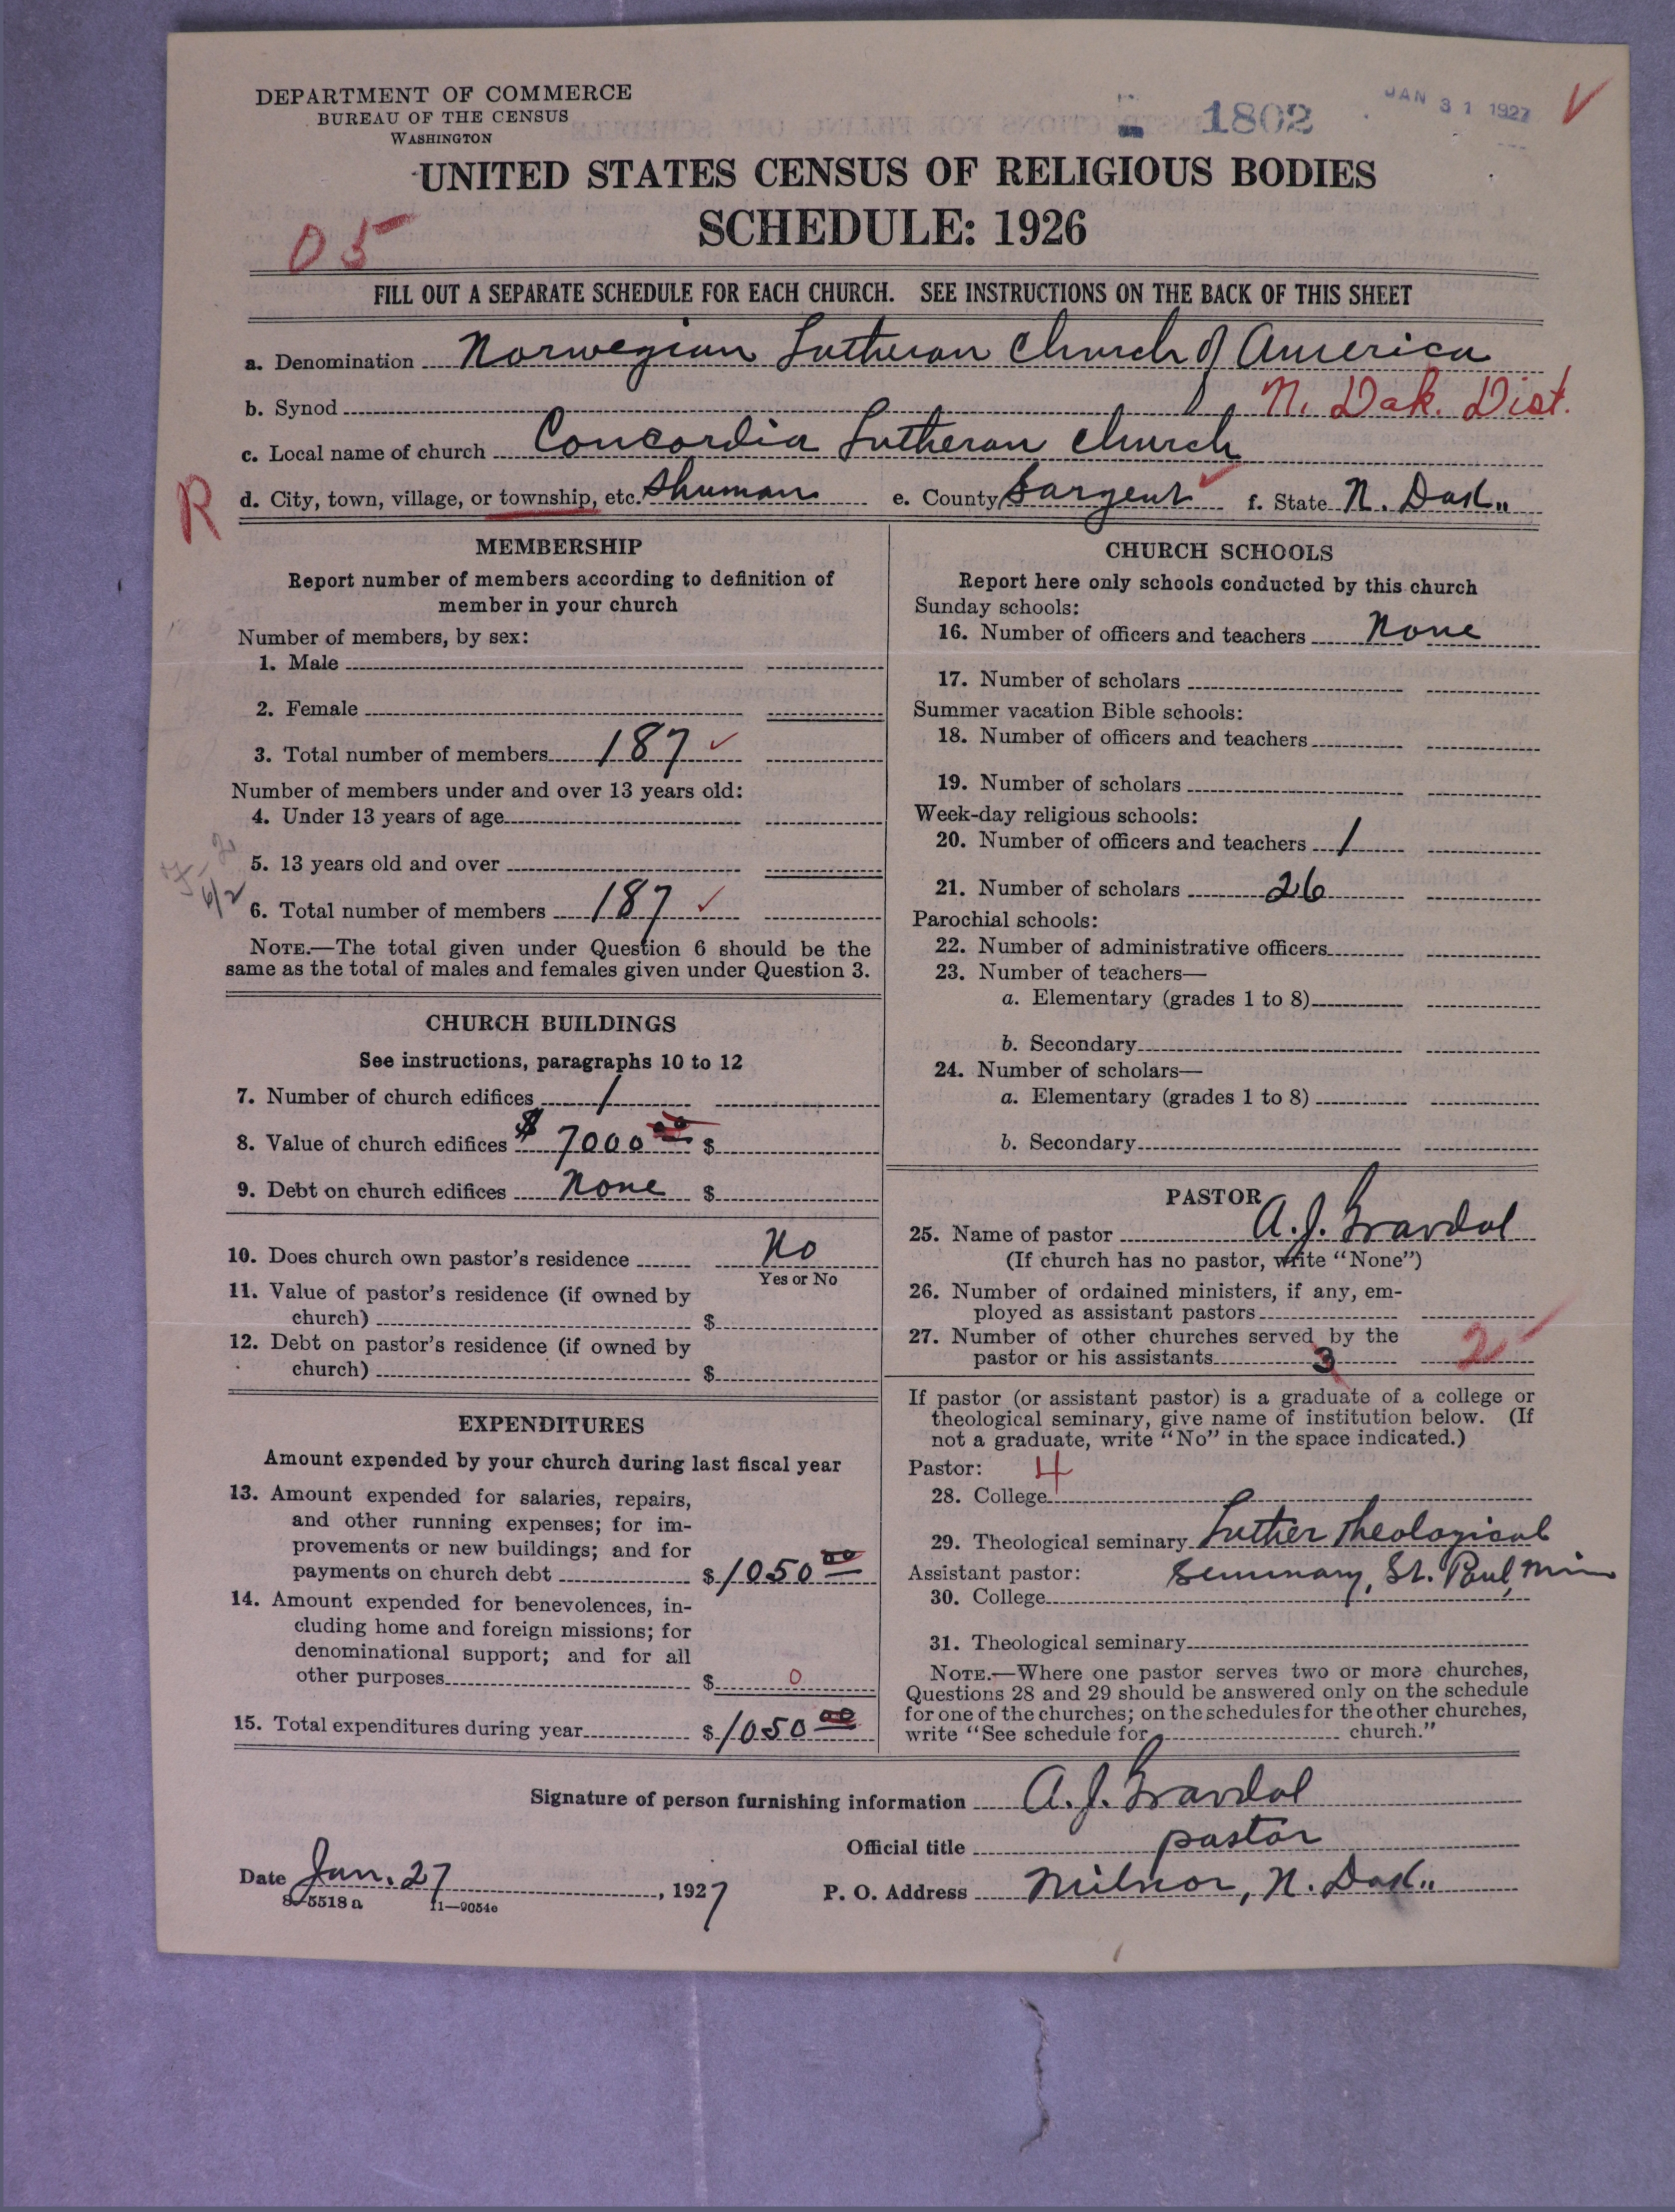 DEPARTMENT OF COMMERCE
BUREAU OF THE CENSUS
WASHINGTON
1802
JAN 31 1927
UNITED STATES CENSUS OF RELIGIOUS BODIES
SCHEDULE: 1926
05
FILL OUT A SEPARATE SCHEDULE FOR EACH CHURCH. SEE INSTRUCTIONS ON THE BACK OF THIS SHEET
a. Denomination Norwegian Lutheran Church of America
b. Synod N. Dak. Dist.
c. Local name of church Concordia Lutheran Church
R d. City, town, village, or township, etc. Shuman e. County Sargent f. State N. Dak.
MEMBERSHIP
Report number of members according to definition of
member in your church
Number of members, by sex:
1. Male
2. Female
3. Total number of members 187
Number of members under and over 13 years old:
4. Under 13 years of age
5. 13 years old and over
6. Total number of members 187
NOTE.—The total given under Question 6 should be the
same as the total of males and females given under Question 3.
CHURCH BUILDINGS
See instructions, paragraphs 10 to 12
7. Number of church edifices 1
8. Value of church edifices $ 7000 00 $
9. Debt on church edifices None $
10. Does church own pastor's residence No
Yes or No
11. Value of pastor's residence (if owned by
church) $
12. Debt on pastor's residence (if owned by
church) $
EXPENDITURES
Amount expended by your church during last fiscal year
13. Amount expended for salaries, repairs,
and other running expenses; for im-
provements or new buildings; and for
payments on church debt $ 1050 00
14. Amount expended for benevolences, in-
cluding home and foreign missions; for
denominational support; and for all
other purposes $ 0
15. Total expenditures during year $ 1050 00
CHURCH SCHOOLS
Report here only schools conducted by this church
Sunday schools:
16. Number of officers and teachers None
17. Number of scholars
Summer vacation Bible schools:
18. Number of officers and teachers
19. Number of scholars
Week-day religious schools:
20. Number of officers and teachers 1
21. Number of scholars 26
Parochial schools:
22. Number of administrative officers
23. Number of teachers—
a. Elementary (grades 1 to 8)
b. Secondary
24. Number of scholars—
a. Elementary (grades 1 to 8)
b. Secondary
PASTOR
25. Name of pastor A. J.
(If church has no pastor, write "None")
26. Number of ordained ministers, if any, em-
ployed as assistant pastors
27. Number of other churches served by the
pastor or his assistants 3 2
If pastor (or assistant pastor) is a graduate of a college or
theological seminary, give name of institution below. (If
not a graduate, write "No" in the space indicated.)
Pastor: 4
28. College
29. Theological seminary Luther Theological
Assistant pastor: Seminary, St. Paul, Min
30. College
31. Theological seminary
NOTE.—Where one pastor serves two or more churches,
Questions 28 and 29 should be answered only on the schedule
for one of the churches; on the schedules for the other churches,
write "See schedule for church."
Signature of person furnishing information A. J.
Official title pastor
Date Jan. 27, 1927 P. O. Address Milnor, N. Dak.
8—5518 a 11—9054c